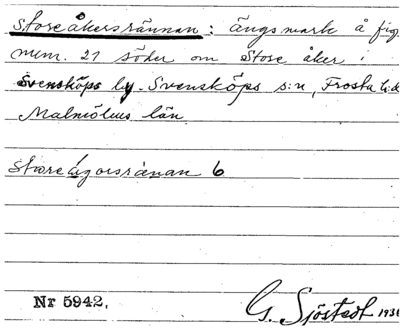 Storeåkersrännan: ängsmark å fig.
num. 21 söder om Store åker i
Svensköps by. Svensköps s:n, Frosta h:d
Malmöhus län.
Nr 5942.
G. Sjöstedt 1931